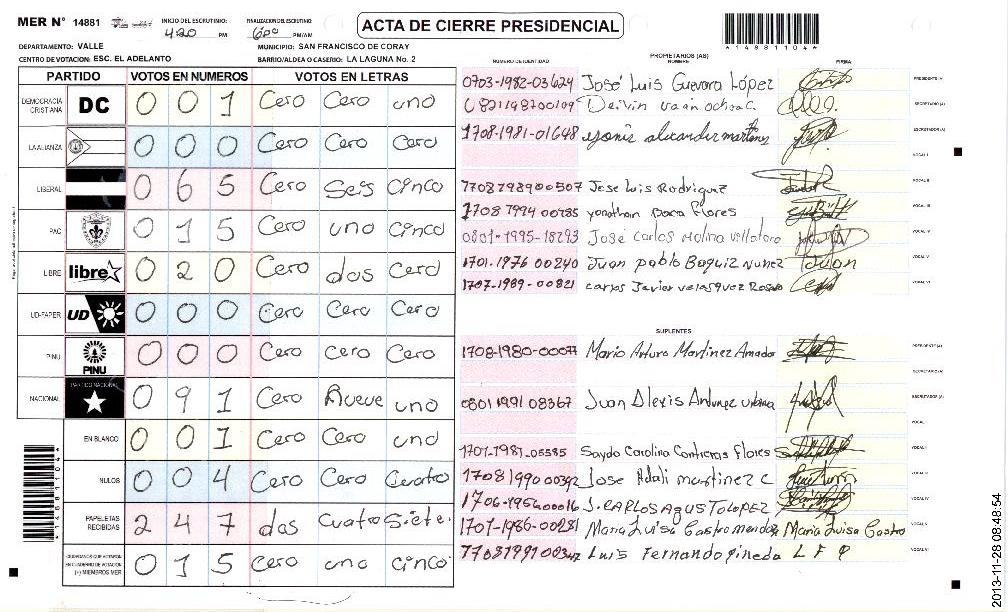 MER N° 14881
INICIO DEL ESCRUTINIO: 4:20 PM
FINALIZACION DEL ESCRUTINIO 6:00 PM/AM
ACTA DE CIERRE PRESIDENCIAL
*1488110 4*
DEPARTAMENTO: VALLE
MUNICIPIO: SAN FRANCISCO DE CORAY
CENTRO DE VOTACION: ESC. EL ADELANTO
BARRIO/ALDEA O CASERIO: LA LAGUNA No. 2
PARTIDO VOTOS EN NUMEROS VOTOS EN LETRAS
DEMOCRACIA CRISTIANA DC 0 0 1 Cero Cero uno
LA ALIANZA 0 0 0 Cero Cero Cero
LIBERAL 0 6 5 Cero Seis Cinco
PAC 0 1 5 Cero uno Cinco
LIBRE libre 0 2 0 Cero dos Cero
UD-FAPER UD 0 0 0 Cero Cero Cero
PINU PINU 0 0 0 Cero Cero Cero
NACIONAL PARTIDO NACIONAL 0 9 1 Cero Nueve uno
EN BLANCO 0 0 1 Cero Cero uno
NULOS 0 0 4 Cero Cero Cuatro
PAPELETAS RECIBIDAS 2 4 7 dos Cuatro Siete.
CIUDADANOS QUE VOTARON EN CUADERNO DE VOTACION (+) MIEMBROS MER 0 1 5 Cero uno cinco
PROPIETARIOS (AS)
NUMERO DE IDENTIDAD NOMBRE FIRMA
0703-1982-03624 José Luis Guevara López PRESIDENTE (A)
SECRETARIO (A)
1708-1981-01648 alexander martinez ESCRUTADOR (A)
VOCAL I
Jose Luis Rodriguez VOCAL II
Yonathan Flores VOCAL III
0801-1995-18293 José Carlos Molina Villatoro VOCAL IV
1701-1976 00240 Juan pablo Nunez VOCAL V
1707-1989-00821 Carlos Javier velasquez VOCAL VI
SUPLENTES
1708-1980-00077 Mario Arturo Martinez Amado PRESIDENTE (A)
SECRETARIO (A)
0801 1991 08367 Juan Alexis ESCRUTADOR (A)
VOCAL I
1701-1981-05585 Carolina Contreras Flores VOCAL II
1708 1990 00392 Jose Adali martinez C VOCAL III
J. CARLOS VOCAL IV
Maria Luisa Castro Maria Luisa Castro VOCAL V
Luis Fernando pineda L F P VOCAL VI
2013-11-28 08:48:54